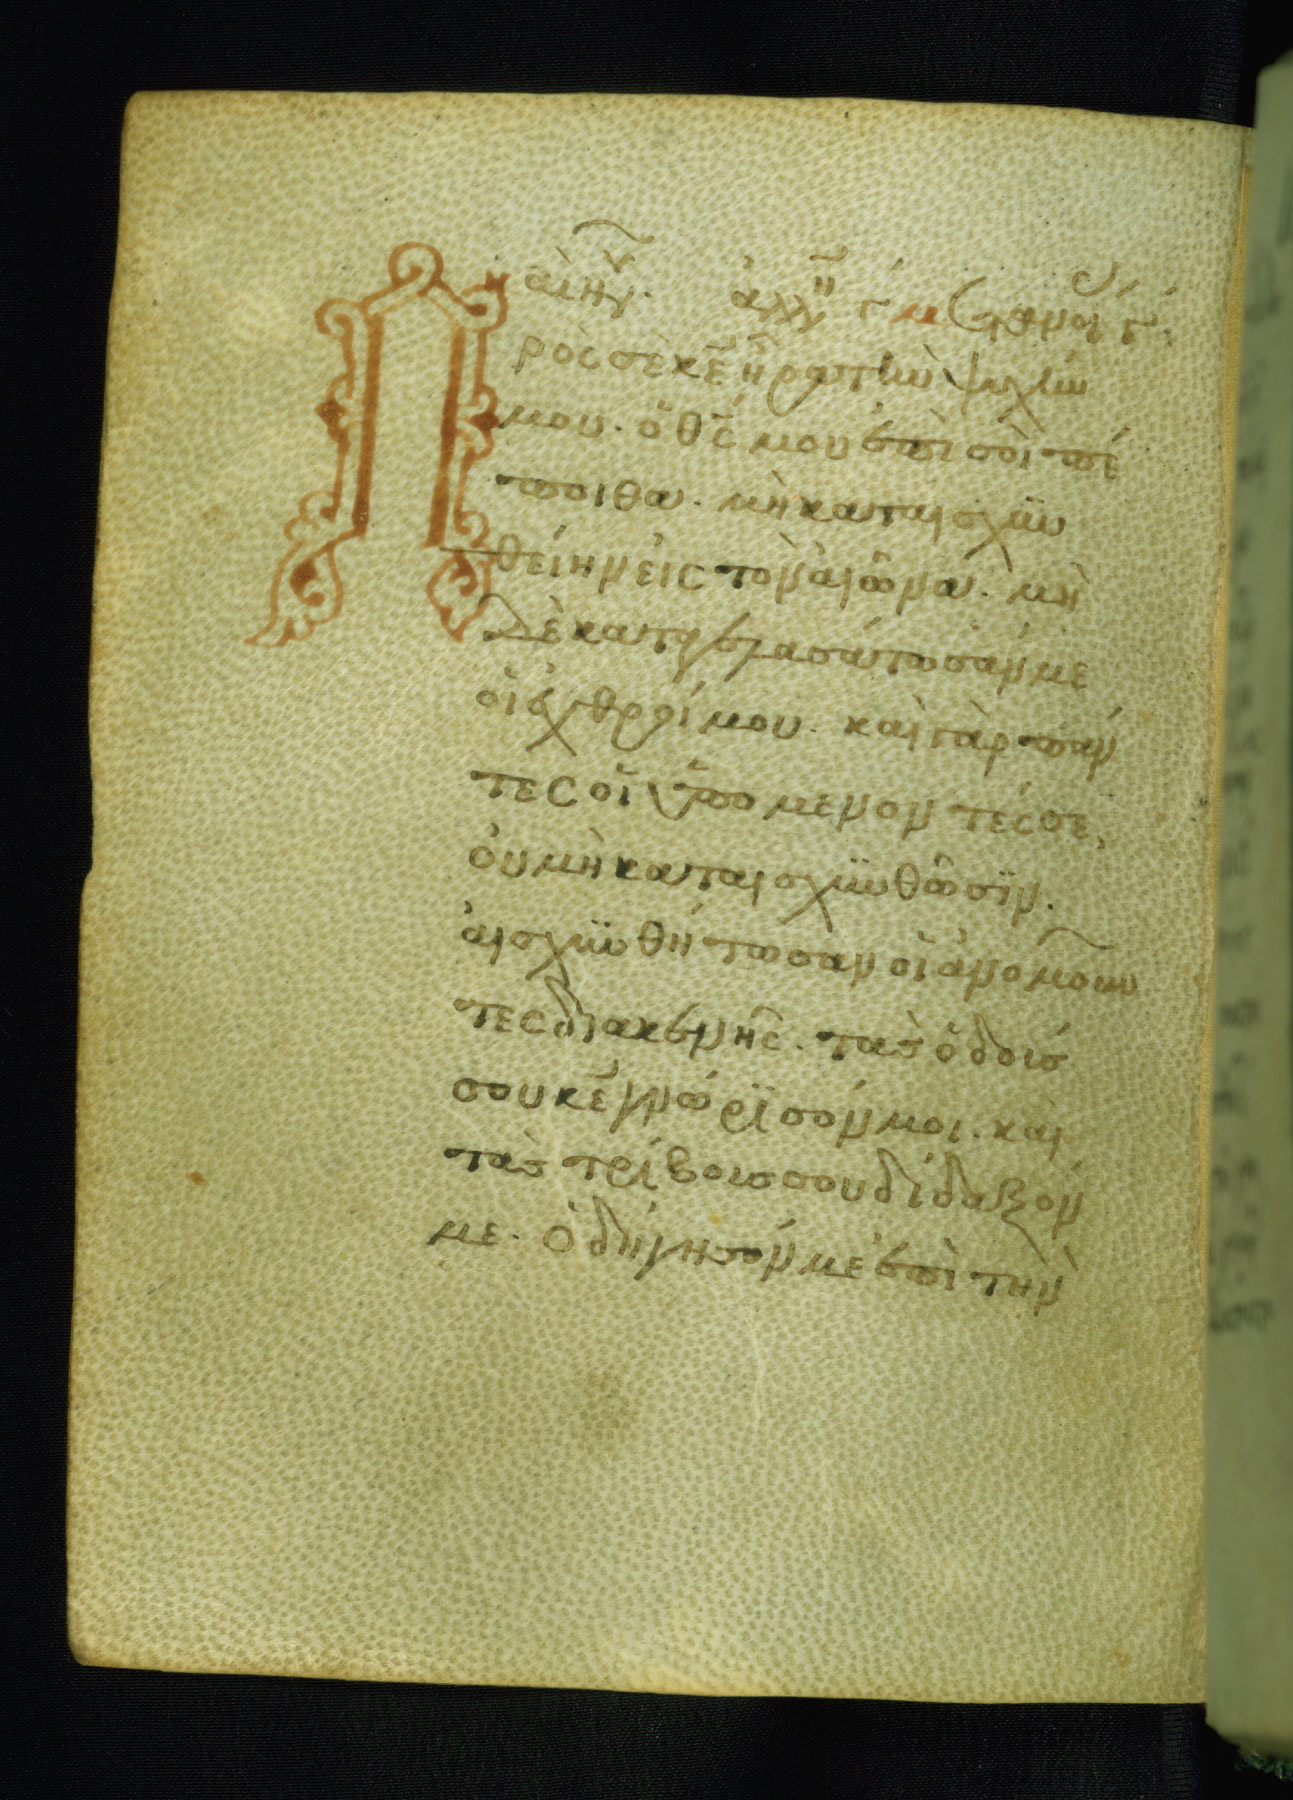 ρὸς σὲ κε ἦρα τὴν ψυχήν
μου. ὁ θς μου ἐπὶ σοὶ πέ
ποιθα. μὴ καταισχυν
θείην εἰς τὸν αἰῶνα. μὴ
δὲ καταγελασάτωσάν με
οἱ ἐχθροί μου. καὶ γὰρ πάν
τες οἱ ὑπομένοντές σε,
οὐ μὴ καταισχυνθῶσϊν.
αἰσχυνθήτωσαν οἱ ἀνομοῦν
τες διακενῆς. τὰς ὁδούς
σου κε γνώρϊσόν μοι. καὶ
τὰς τρίβους σου δίδαξόν
με. ὁδήγησόν με ἐπὶ τὴν